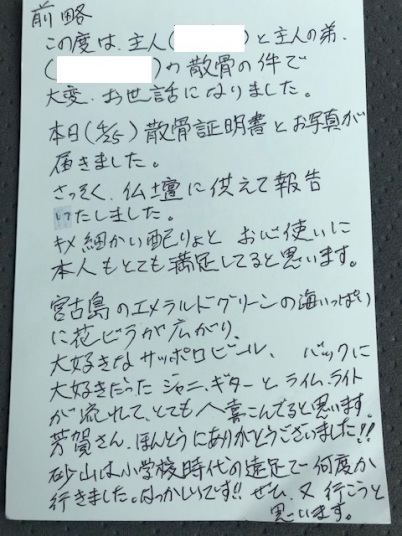 前略
この度は、主人( )と主人の弟、
( )の散骨の件で
大変、お世話になりました。
本日(4/25)散骨証明書とお写真が
届きました。
さっそく、仏壇に供えて報告
いたしました。
キメ細かい配りょと お心使いに
本人もとても満足してると思います。
宮古島のエメラルドグリーンの海いっぱい
に花ビラが広がり、
大好きなサッポロビール、 バックに
大好きだった ジャニ、ギターと ライム、ライト
が流れて、とても 喜こんでると思います。
芳賀さん、ほんとうにありがとうございました!!
砂山は小学校時代の遠足で 何度か
行きました。なつかしいです!! ぜひ、又 行こうと
思います。